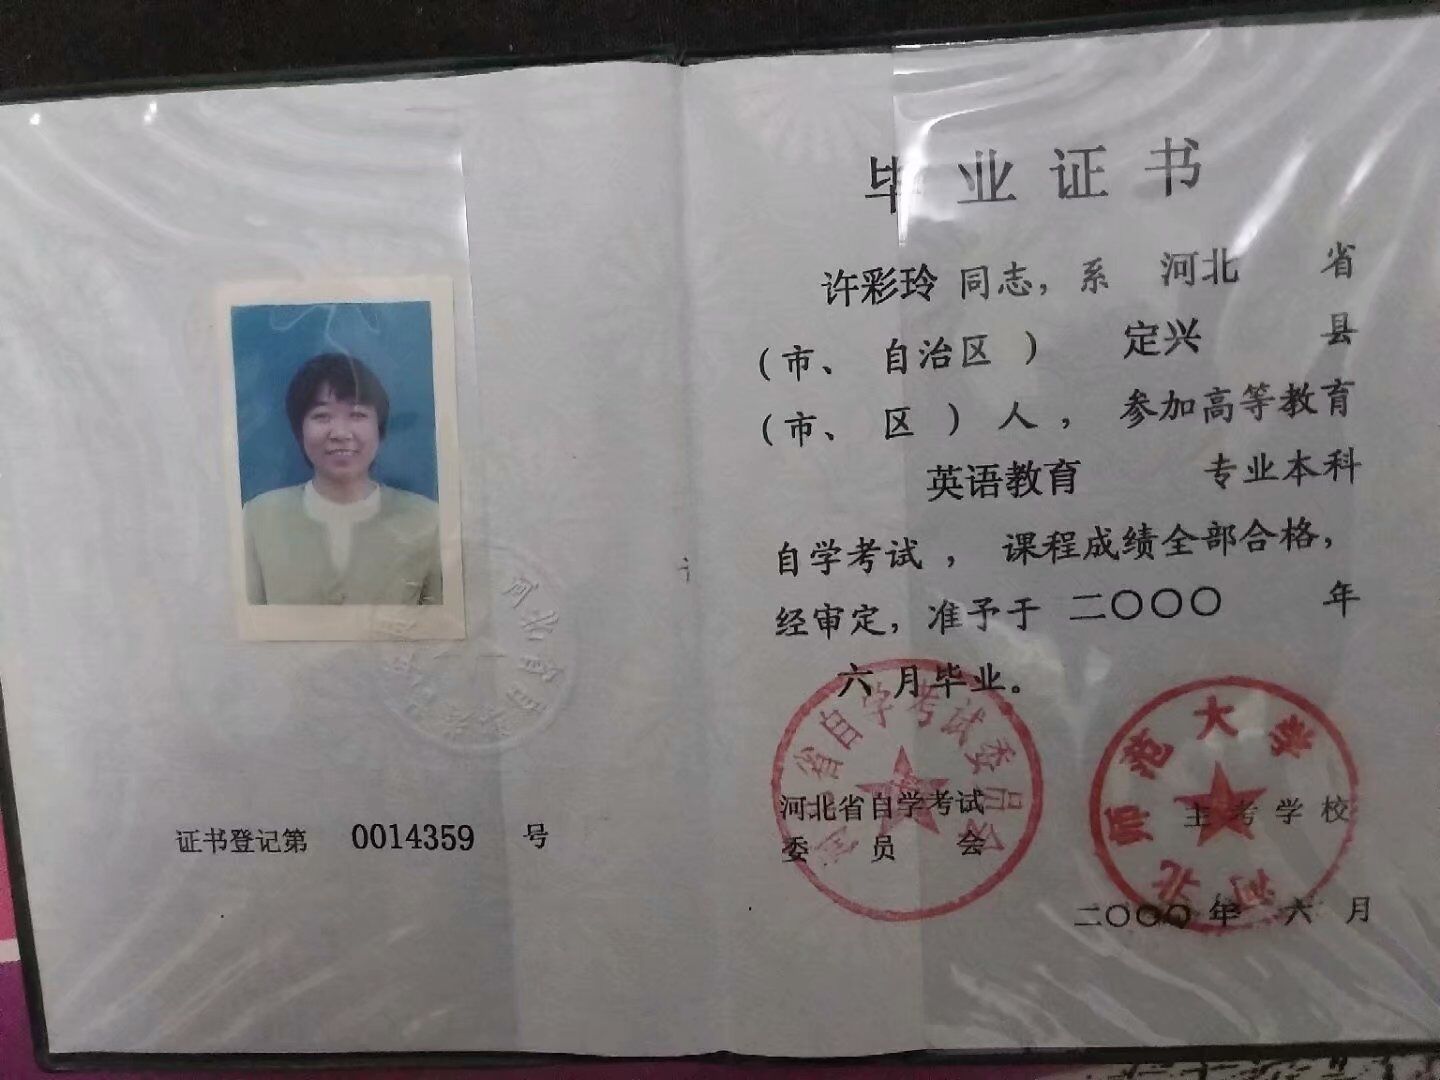 证书登记第 0014359 号
毕业证书
许彩玲 同志，系 河北 省
（市、 自治区 ） 定兴 县
（市、 区 ） 人 ， 参加高等教育
英语教育 专业本科
自学考试 ， 课程成绩全部合格，
经审定，准予于 二〇〇〇 年
六 月毕业。
省自学考试委员会
河北省自学考试
委 员 会
河北师范大学
主考学校
二〇〇〇年 六 月
河北省自